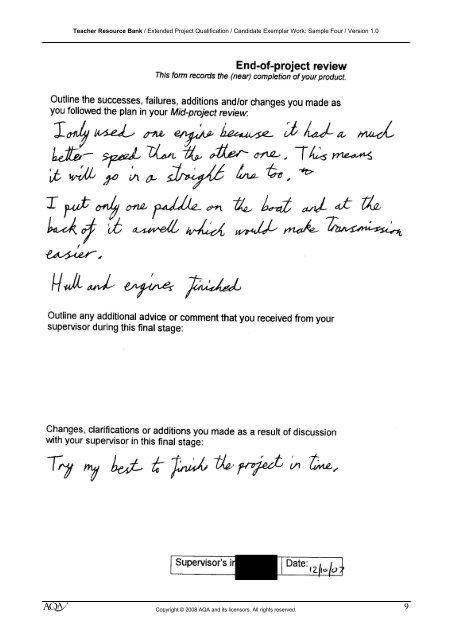 Teacher Resource Bank / Extended Project Qualification / Candidate Exemplar Work: Sample Four / Version 1.0
End-of-project review
This form records the (near) completion of your product.
Outline the successes, failures, additions and/or changes you made as
you followed the plan in your Mid-project review:
I only used one engine because it had a much
better speed than the other one. This means
it will go in a straight line too.
I put only one paddle on the boat and at the
back of it aswell which would make transmission
easier.
Hull and engines finished
Outline any additional advice or comment that you received from your
supervisor during this final stage:
Changes, clarifications or additions you made as a result of discussion
with your supervisor in this final stage:
Try my best to finish the project in time,
Supervisor's in Date: 12/10/07
AQA Copyright © 2008 AQA and its licensors. All rights reserved. 9